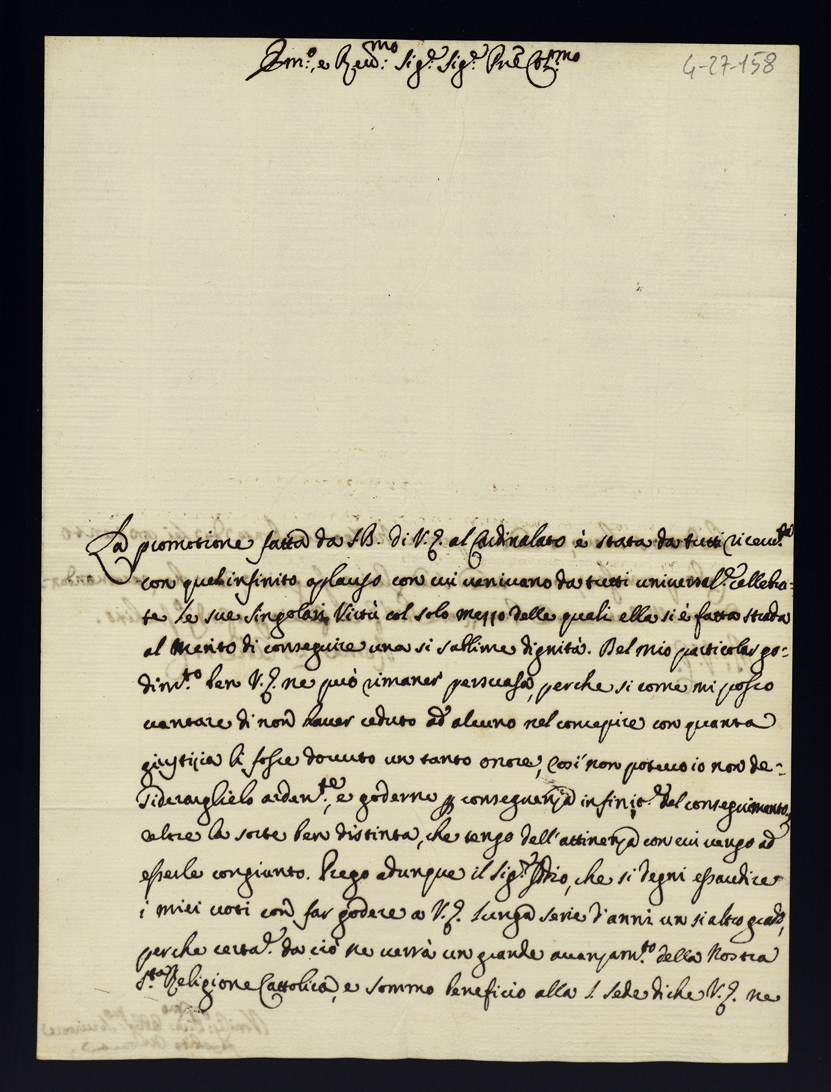 Em.º, e Reud:mo Sig.r Sig.r Pñe Col.mo
4-27-158
La promotione fatta da S.B. di V.E. al Cardinalato è stata da tutti riceuu.ta
con quell'infinito aplauso con cui ueniuano da tutti uniuersal.e cellebra-
te le sue singolari Virtù col solo mezzo delle quali ella si è fatta strada
al Merito di conseguire una si sublime dignità. Del mio particolar go-
dim.to ben V.E. ne può rimaner persuasa, perche si come mi posso
uantare di non hauer ceduto ad alcuno nel concepire con quanta
giustizia li fosse douuto un tanto onore, così non poteuo io non de-
siderarglielo arden.te, e goderne p conseguenza infinit.e del conseguimento,
oltre la sorte ben distinta, che tengo dell'attinenza con cui uengo ad
esserle congiunto. Prego adunque il Sig.r Iddio, che si degni essaudire
i miei uoti con far godere a V.E. lunga serie d'anni un si alto grado,
perche certa.e da ciò ne uerrà un grande auanzam.to della Nostra
S.ta Religione Cattolica, e sommo beneficio alla S. Sede di che V.E. ne